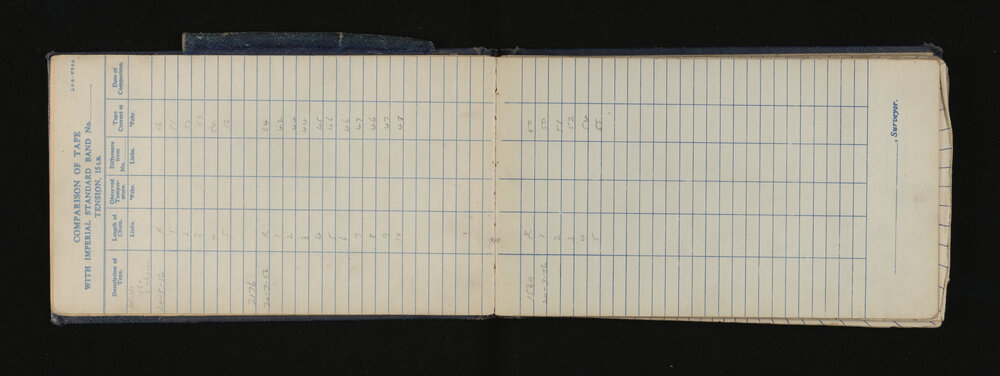 L.S.B.-W544
COMPARISON OF TAPE
WITH IMPERIAL STANDARD BAND No.
TENSION, 15 LB.
Description of Tape.
Length of Chain. Links.
Observed Temperature. °Fahr.
Difference from No. Links.
Tape Correct at °Fahr.
Date of Comparison.
R 52
1 51
2 52
3 53
4 54
5 52
2176
20-7-56
R 34
1 42
2 44
3 44
4 45
5 46
6 46
7 47
8 46
9 47
10 47
1560
20-7-56
R 50
1 50
2 51
3 52
4 54
5 55
, Surveyor.